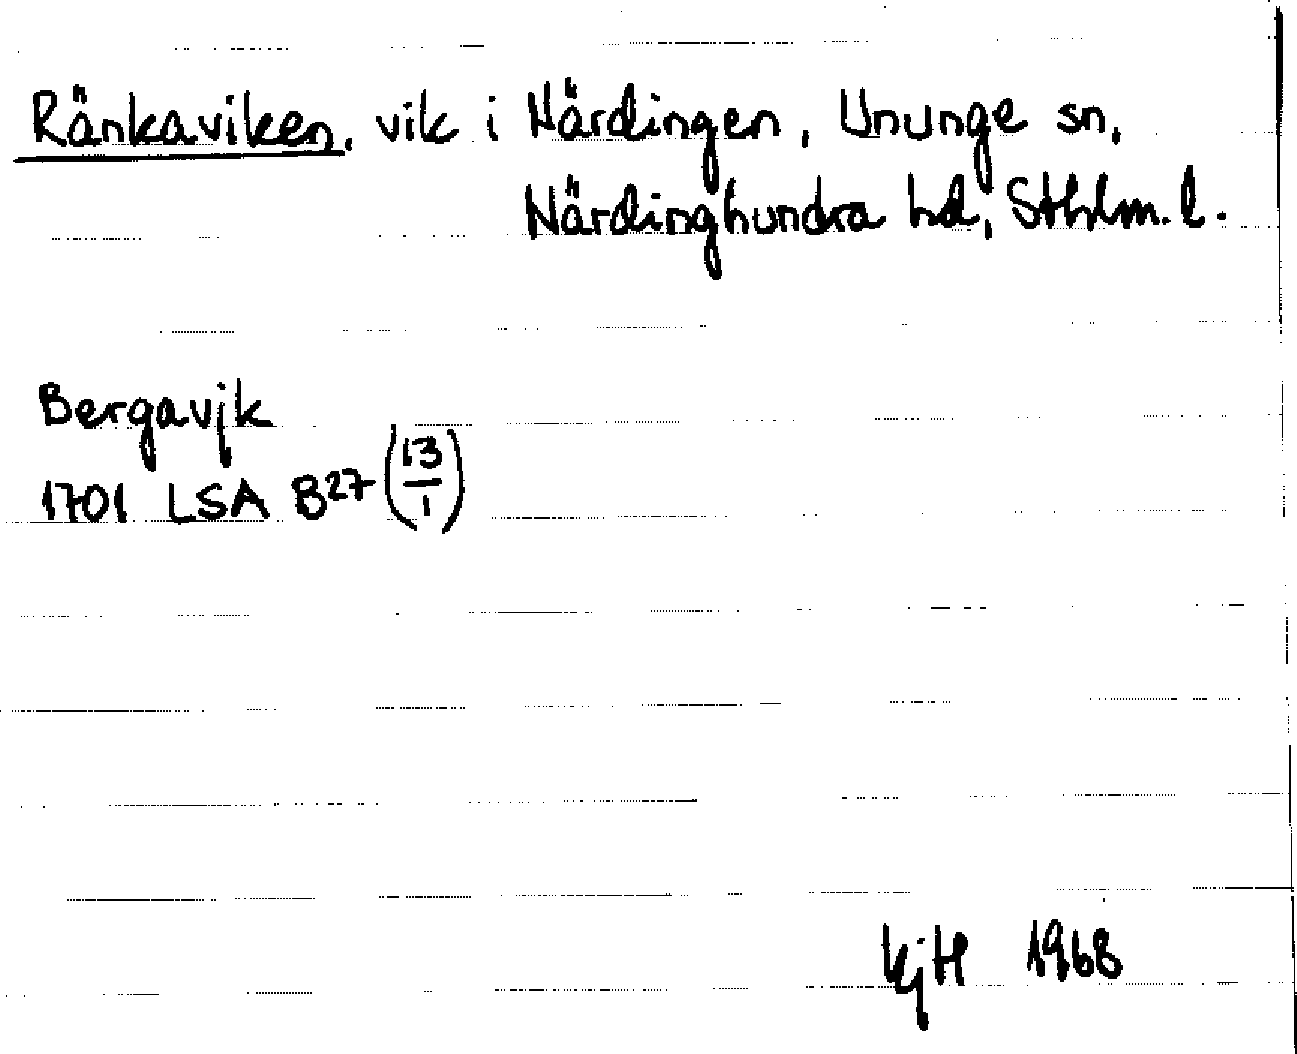 Ränkaviken, vik i Närdingen, Ununge sn,
Närdinghundra hd, Sthlm. l.
Bergavjk
1701 LSA B27 (13/1)
KjH 1968